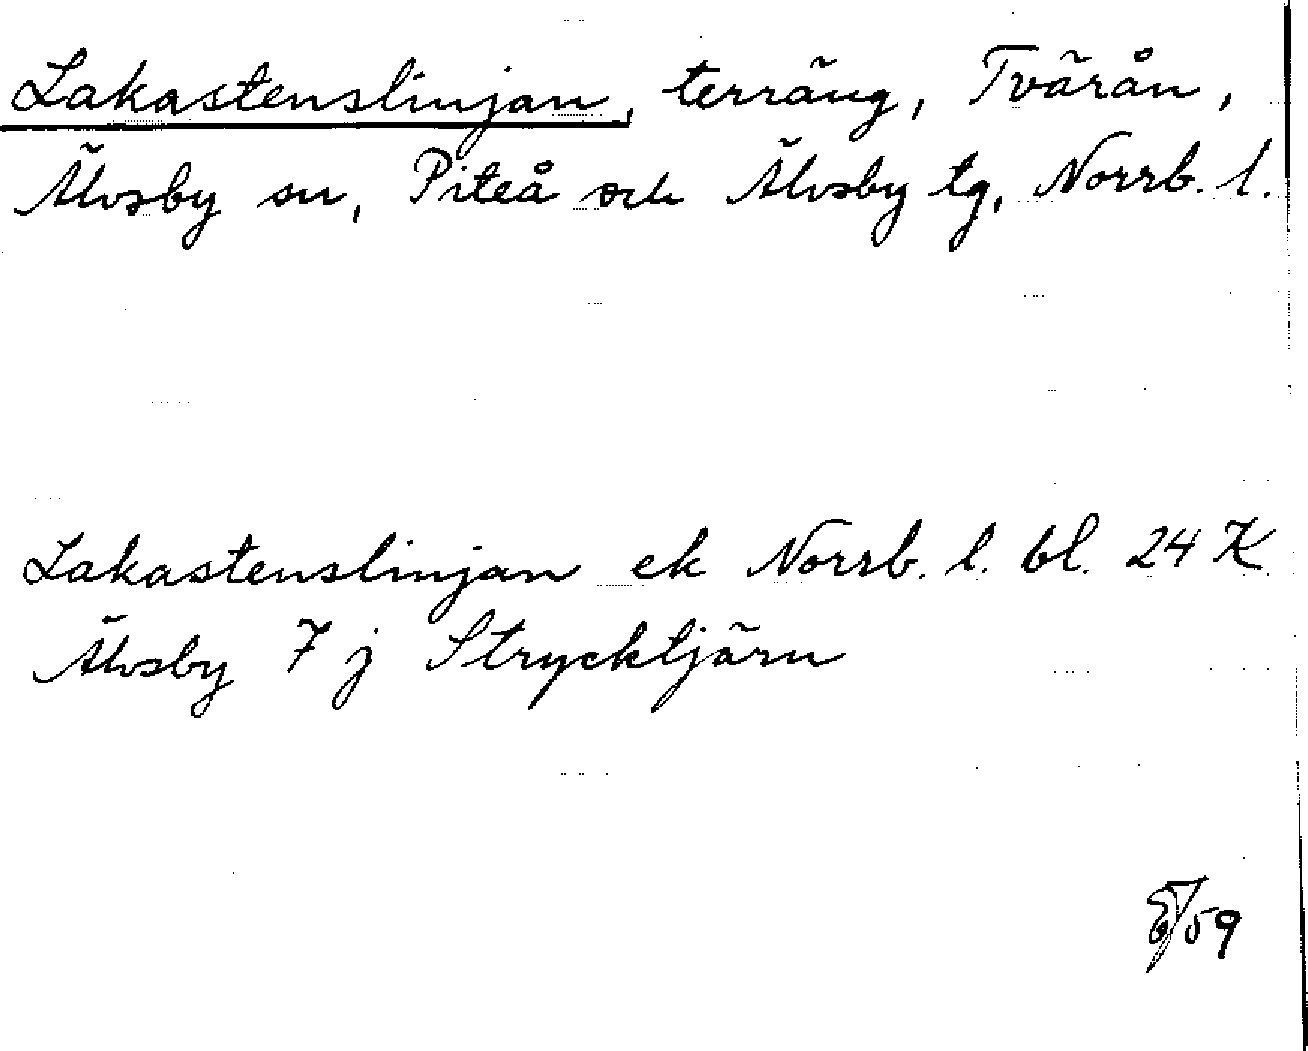 Lakastenslinjan, terräng, Tvärån,
Älvsby sn, Piteå och Älvsby tg, Norrb. l.
Lakastenslinjan ek Norrb. l. bl. 24 K
Älvsby 7 j Strycktjärn
/59